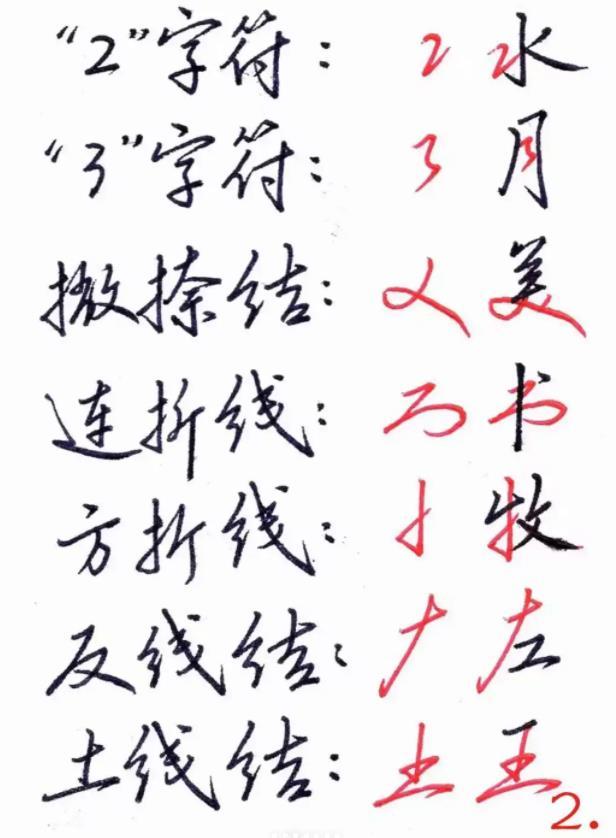 “2”字符： 2 水
“3”字符： 3 月
撇捺结： 美
连折线： 书
方折线： 牧
反线结： 左
土线结： 王
2.